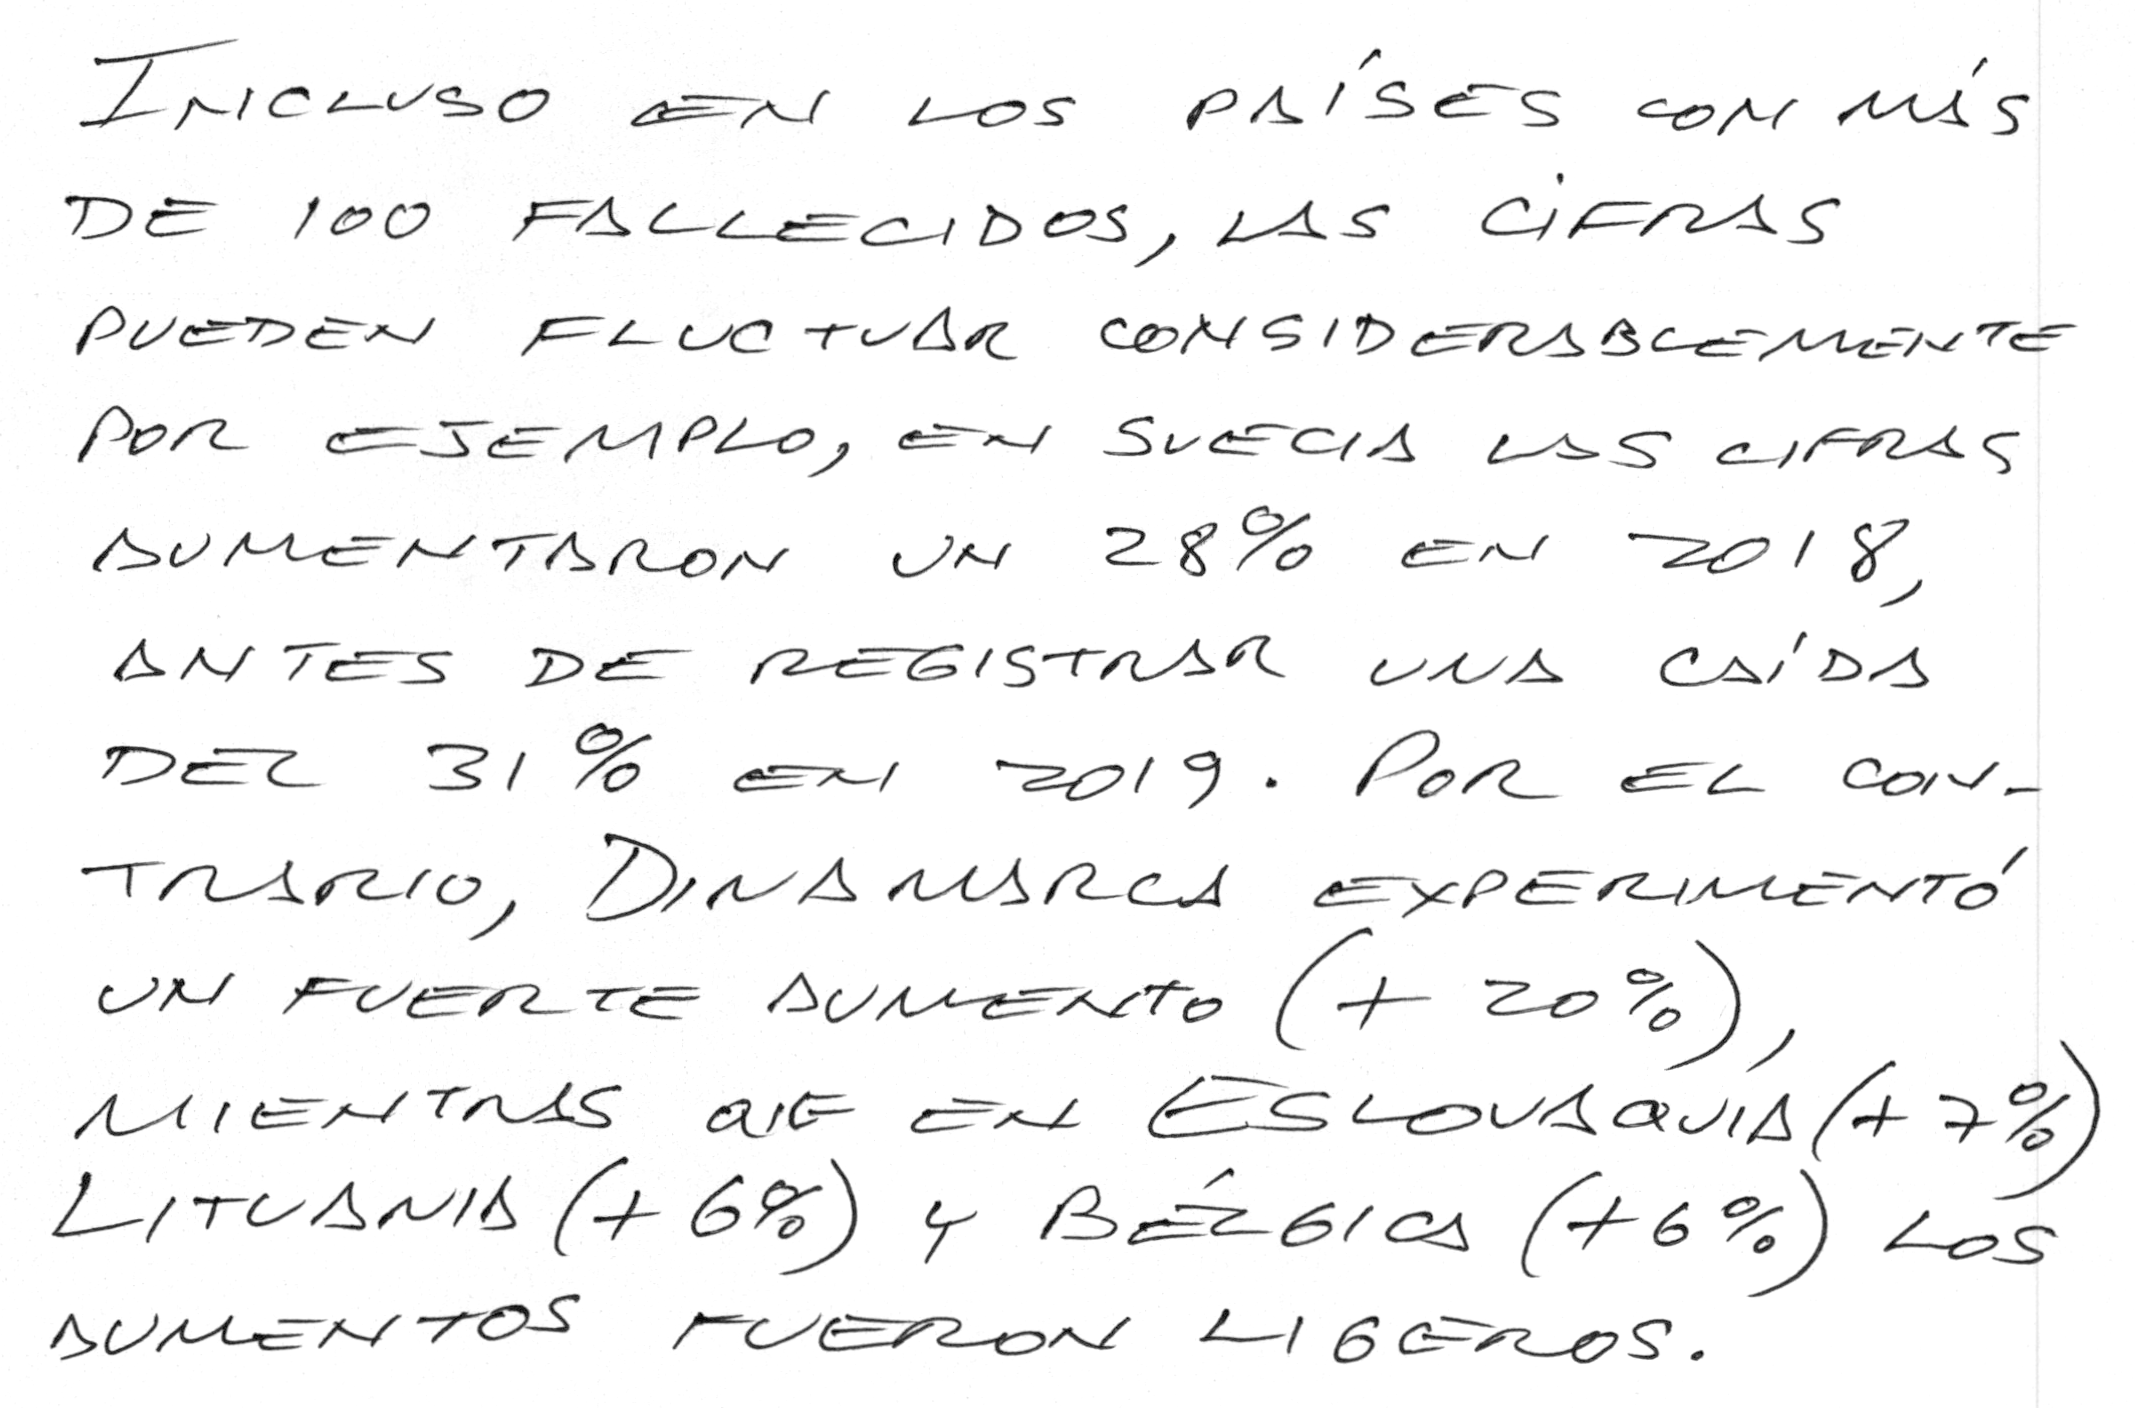 INCLUSO EN LOS PAÍSES CON MÁS
DE 100 FALLECIDOS, LAS CIFRAS
PUEDEN FLUCTUAR CONSIDERABLEMENTE
POR EJEMPLO, EN SUECIA LAS CIFRAS
AUMENTARON UN 28% EN 2018,
ANTES DE REGISTRAR UNA CAÍDA
DEL 31% EN 2019. POR EL CON-
TRARIO, DINAMARCA EXPERIMENTÓ
UN FUERTE AUMENTO (+ 20%),
MIENTRAS QUE EN ESLOVAQUÍA (+ 7%)
LITUANIA (+ 6%) Y BÉLGICA (+6%) LOS
AUMENTOS FUERON LIGEROS.